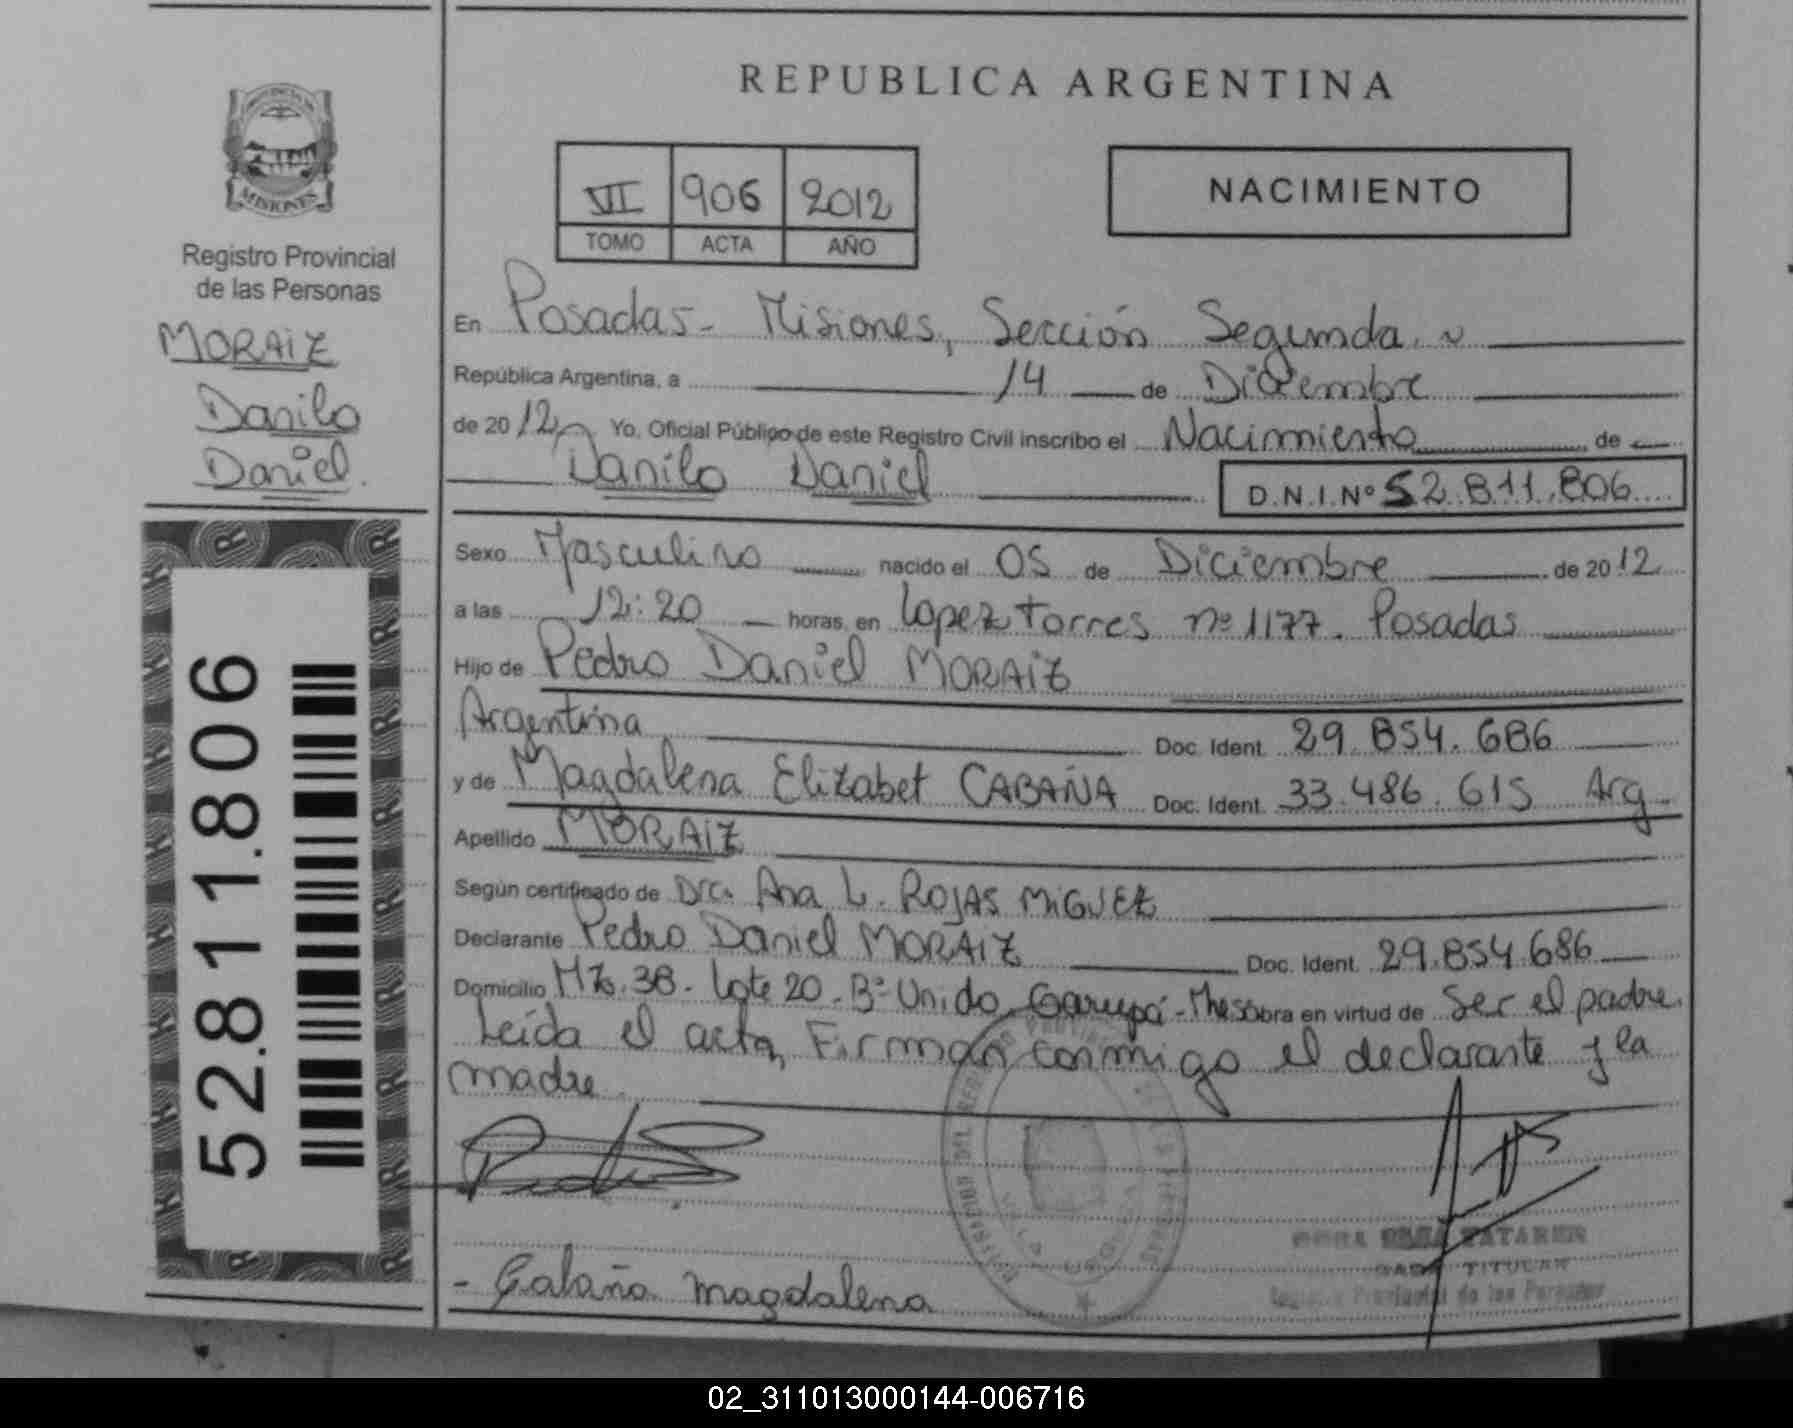 REPUBLICA ARGENTINA
MISIONES
Registro Provincial
de las Personas
MORAIZ
Danilo
Daniel.
52.811.806
VII 906 2012
TOMO ACTA AÑO
NACIMIENTO
En Posadas - Misiones, Sección Segunda.
República Argentina, a 14 de Diciembre
de 2012 Yo, Oficial Público de este Registro Civil inscribo el Nacimiento de
Danilo Daniel D.N.I.Nº 52.811.806
Sexo Masculino nacido el 05 de Diciembre de 2012
a las 12:20 horas, en Lopez Torres nº 1177. Posadas
Hijo de Pedro Daniel MORAIZ
Argentina Doc. Ident. 29.854.686
y de Magdalena Elizabet CABAÑA Doc. Ident. 33.486.615 Arg
Apellido MORAIZ
Según certificado de Dra. Ana L. ROJAS MIGUEZ
Declarante Pedro Daniel MORAIZ Doc. Ident. 29.854.686
Domicilio Mz. 38. Lote 20. Bº Unido Garupá - Mnes Obra en virtud de Ser el padre.
Leída el acta, Firman conmigo el declarante y la
madre.
- Cabaña magdalena
TITULAR
Provincial de las Personas
02_311013000144-006716